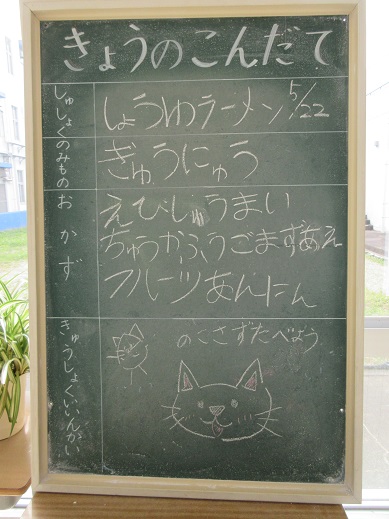 きょうのこんだて
しゅしょく
しょうゆラーメン 5/22
のみもの
ぎゅうにゅう
おかず
えびしゅうまい
ちゅうかふうごまずあえ
フルーツあんにん
きゅうしょくいいんかい
のこさずたべよう